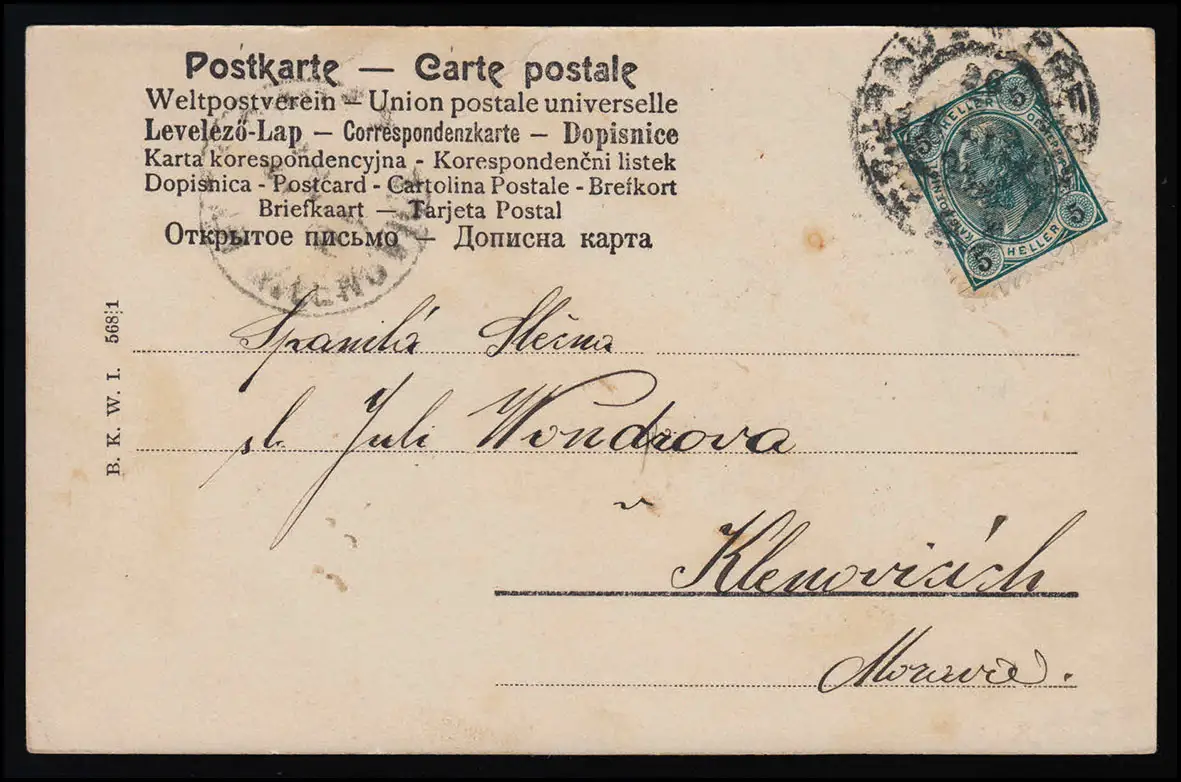 Postkarte — Carte postale
Weltpostverein – Union postale universelle
Levelező-Lap – Correspondenzkarte – Dopisnice
Karta korespondencyjna - Korespondenčni listek
Dopisnica - Postcard - Cartolina Postale - Brefkort
Briefkaart — Tarjeta Postal
Открытое письмо — Дописна карта
5 HELLER 5
5 HELLER 5
B. K. W. I. 568:1
Spanilá Slečna
sl. Juli Wondrova
v
Klenovicích
Moravě.